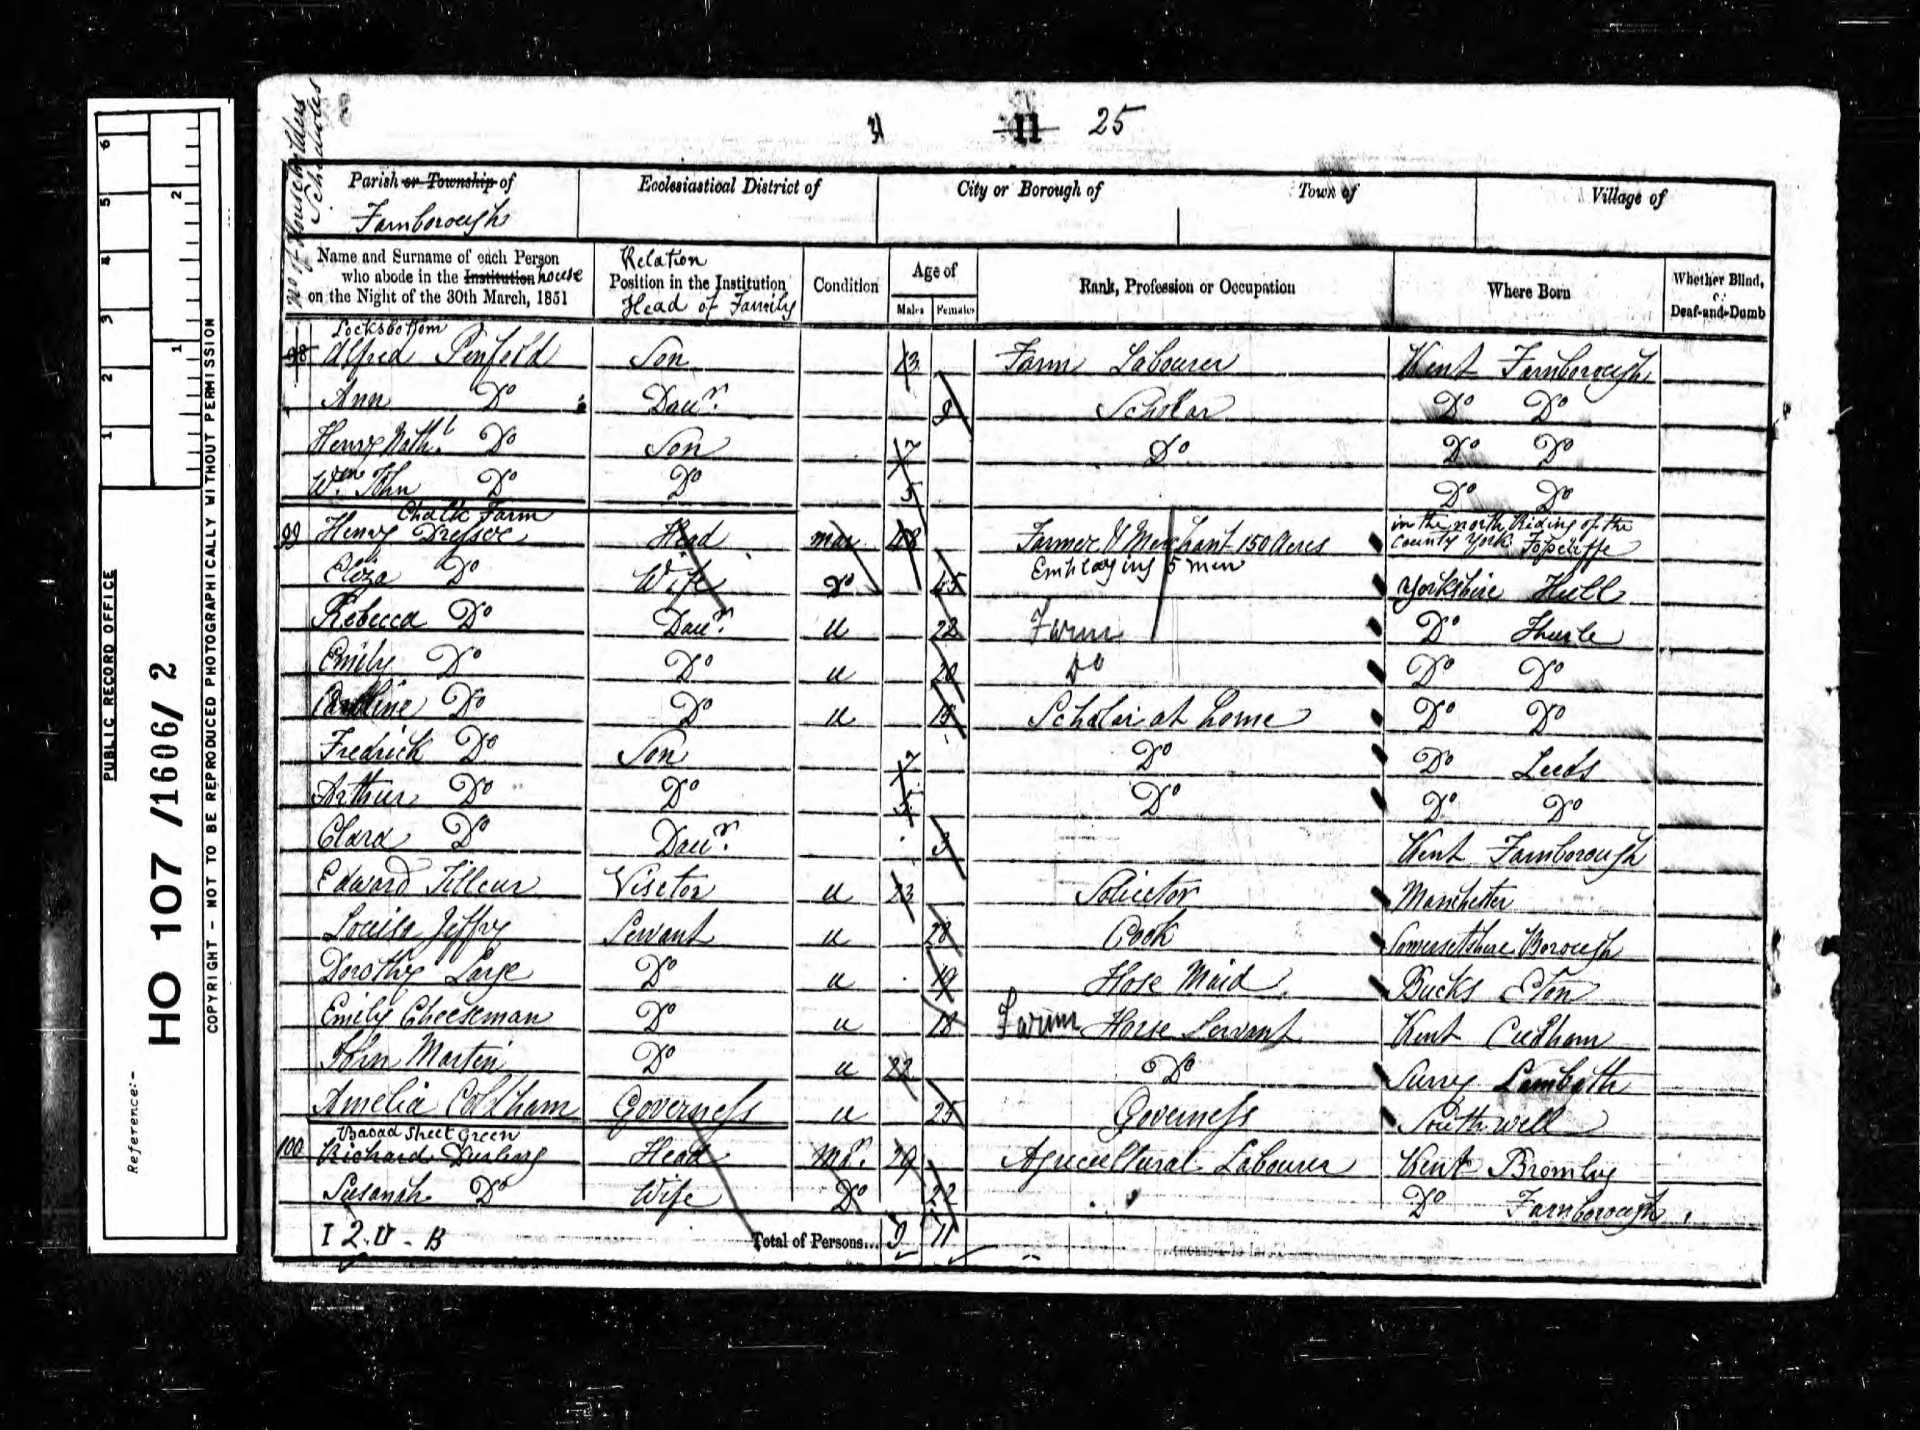 31 II 25
No of Householders Schedules
Parish or Township of Ecclesiastical District of City or Borough of Town of Village of
Farnborough
Name and Surname of each Person who abode in the Institution house on the Night of the 30th March, 1851
Relation Position in the Institution Head of Family
Condition
Age of
Males Females
Rank, Profession or Occupation
Where Born
Whether Blind, or Deaf-and-Dumb
Locksbottom
98 Alfred Penfold Son 13 Farm Labourer Kent Farnborough
Ann Do Daur. Scholar Do Do
Henry Nath.l Do Son 7 Do Do Do
Wm John Do Do 5 Do Do
Chalk Farm
99 Henry Dresser Head mar 48 Farmer & Merchant 150 Acres in the north Riding of the County York Topcliffe
Employing 5 men
Elizath Do Wife Do 45 Yorkshire Hull
Rebecca Do Daur. u 22 Farm Do Thurle
Emily Do Do u 20 Do Do Do
Caroline Do Do u 15 Scholar at home Do Do
Fredrick Do Son 7 Do Do Leeds
Arthur Do Do 5 Do Do Do
Clara Do Daur. 3 Kent Farnborough
Edward Visetor u 23 Solicetor Manchester
Louisa Jeffry Servant u 28 Cook Somersetshire Borough
Dorothy Large Do u 19 Hose Maid Bucks Eton
Emily Cheeseman Do u 18 Farm Horse Servant Kent Cudham
John Martin Do u 22 Do Surry Lambeth
Amelia Coldham Governess u 25 Governess Southwell
Baoad Street Green
100 Richard Durling Head Mr. 29 Agricultural Labourer Kent Bromley
Susanah Do Wife Do 22 Do Farnborough
I 2. U - B Total of Persons... 9 11
PUBLIC RECORD OFFICE
Reference:-
HO 107 /1606/ 2
COPYRIGHT - NOT TO BE REPRODUCED PHOTOGRAPHICALLY WITHOUT PERMISSION
1 2 3 4 5 6
1 2